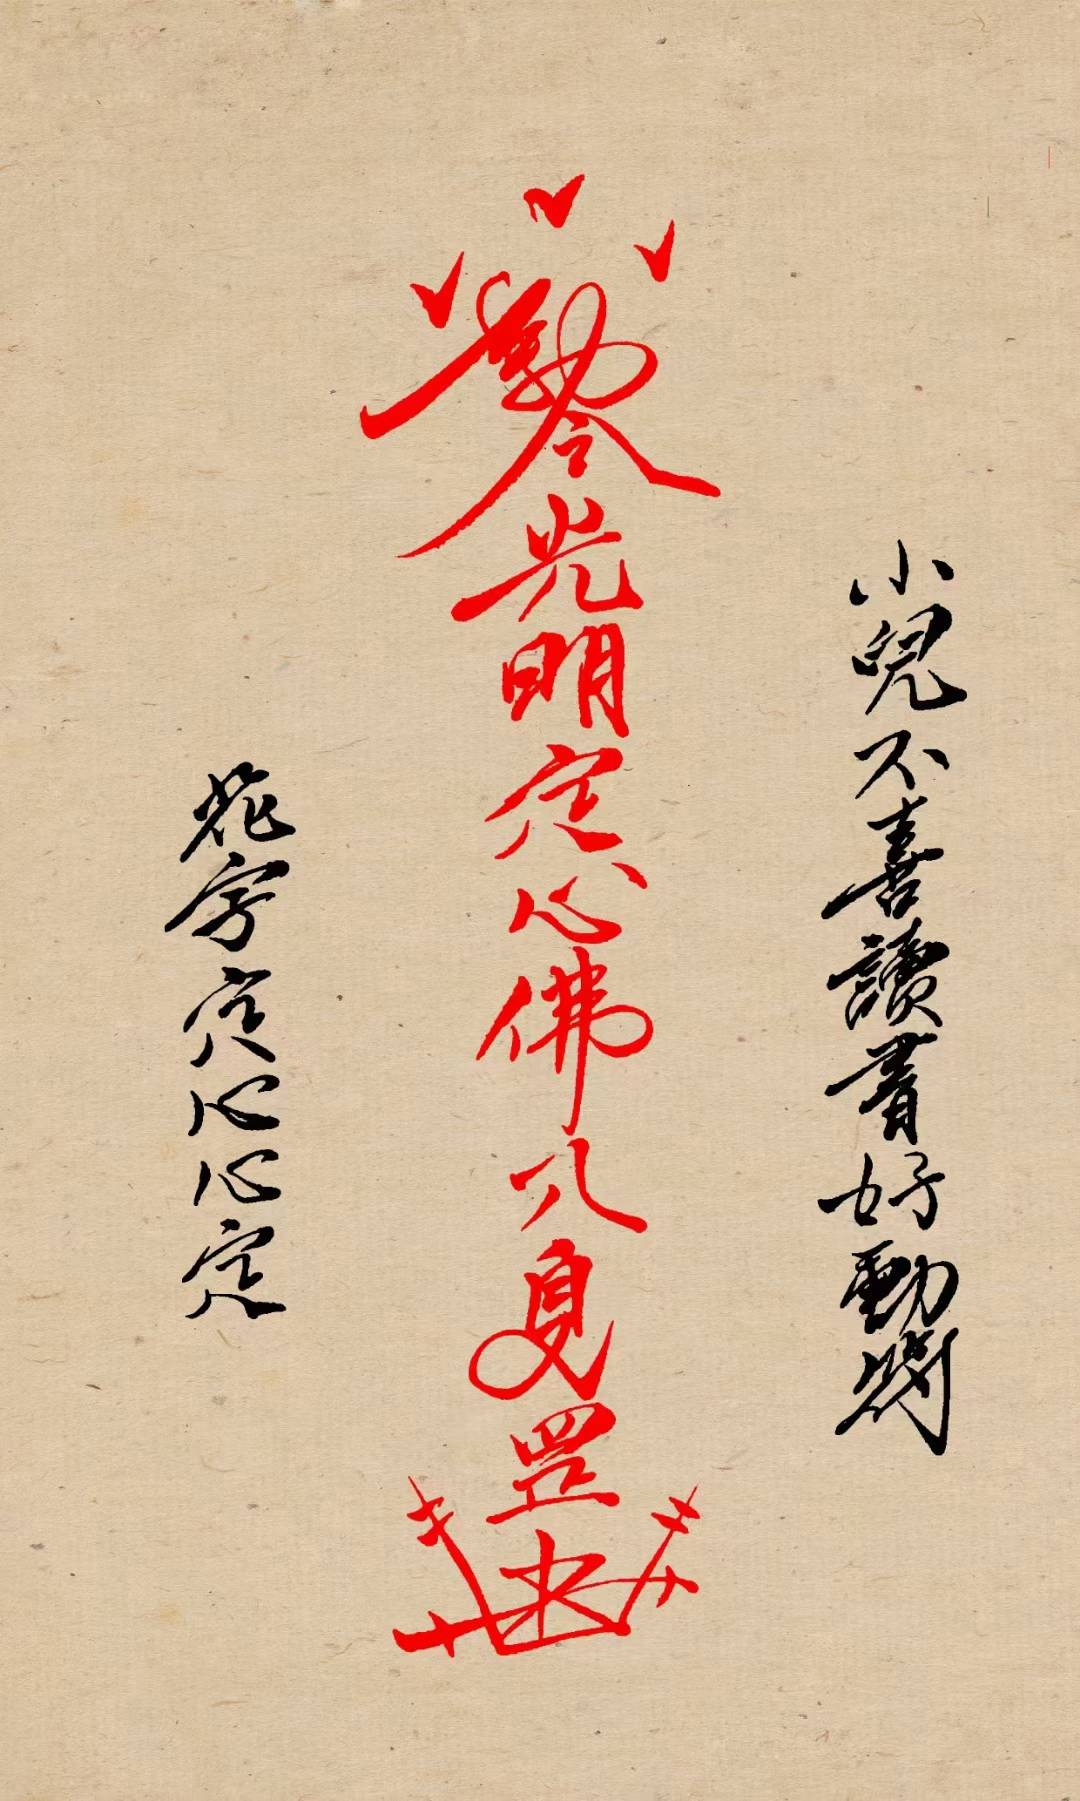 小兒不喜讀書好動時
勅令光明定心佛八身罡
花字定心心定